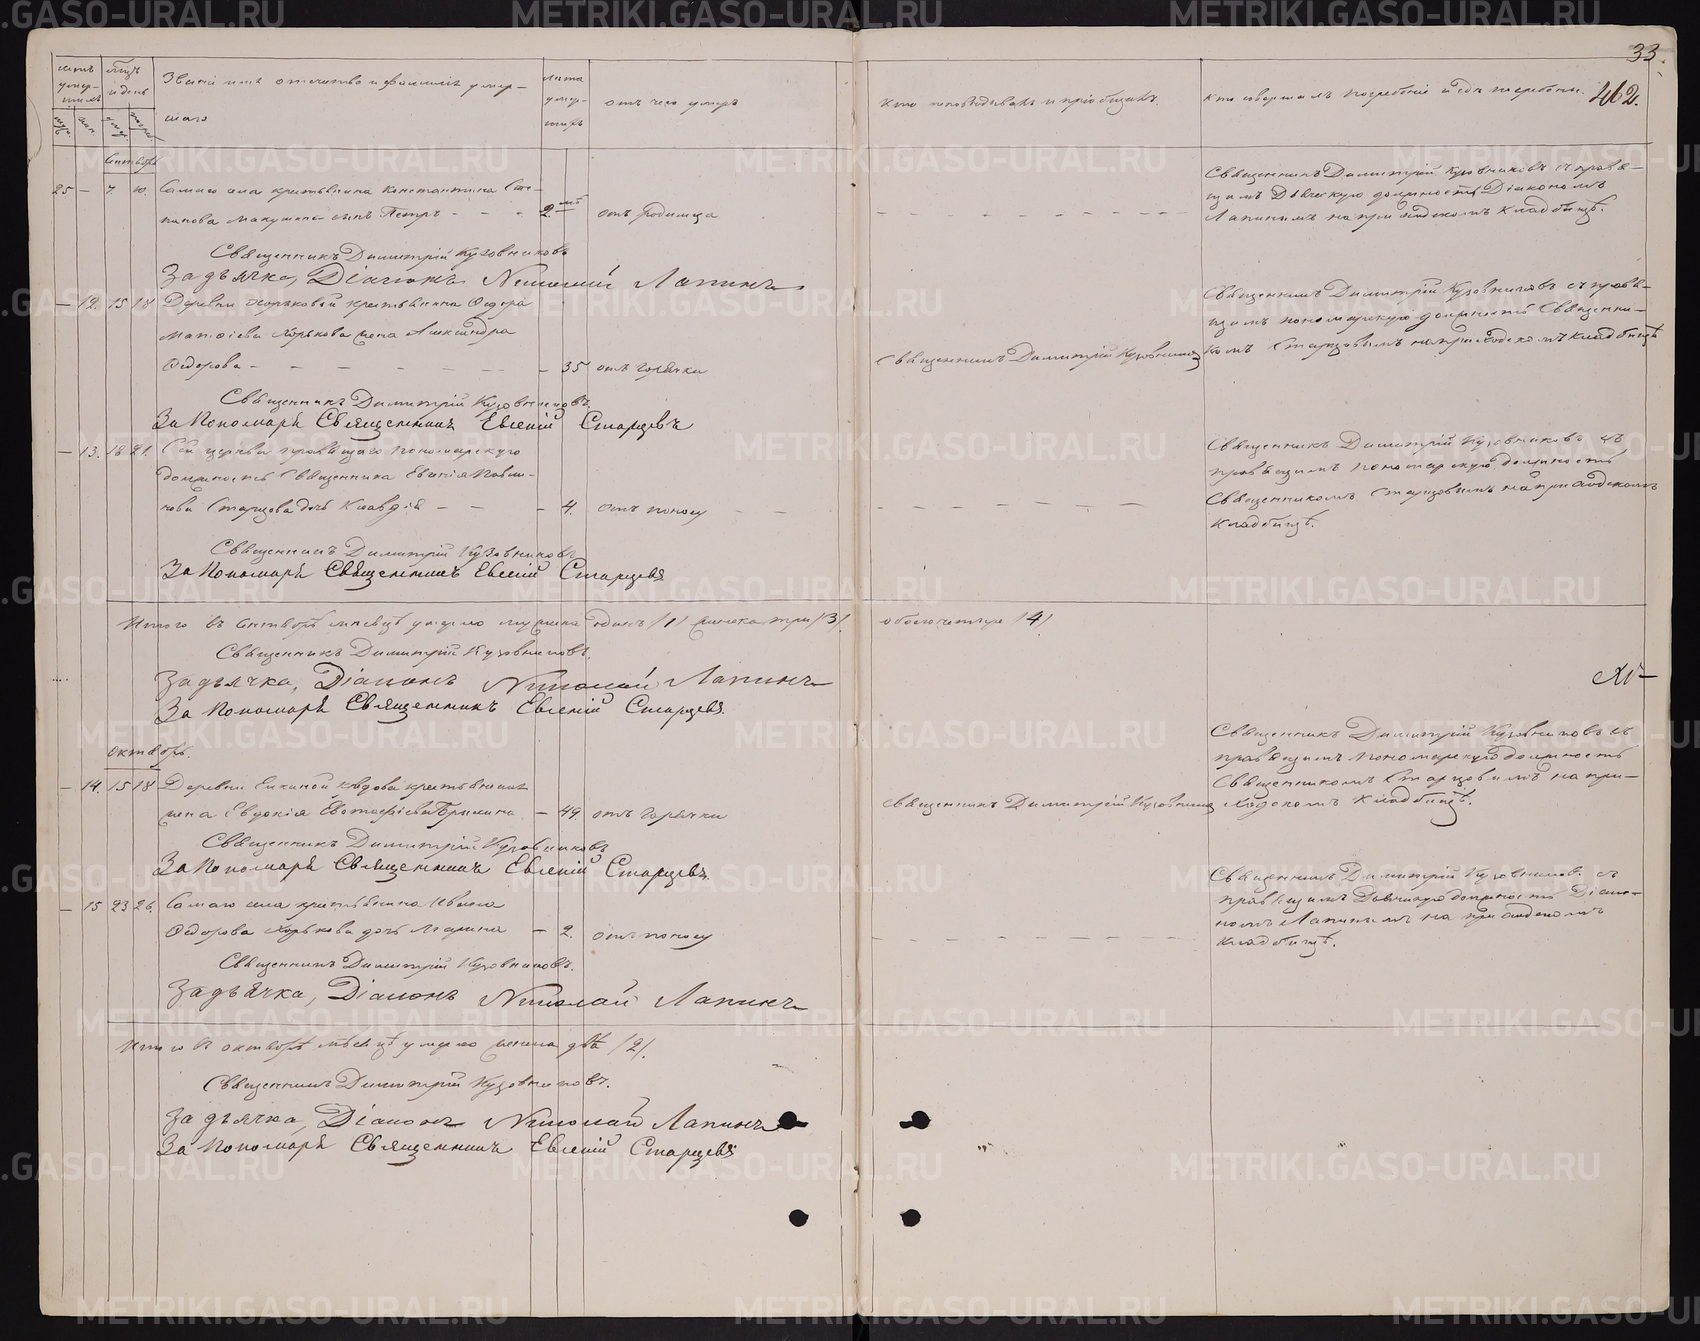 33.
462.
счетъ умер-шихъ
мѣц. и день
Званіе имя отчество и фамилія умер-
шаго
лѣта умер-шихъ
отъ чего умеръ
кто исповѣдывалъ и пріобщалъ.
кто совершалъ погребеніе и гдѣ погребены.
25 — 7 10. Самаго села крестьянина Константина Сте-
панова Макушина сынъ Петръ - - - 2 мѣ отъ родимца
Священникъ Димитрій Кузовниковъ съ правя-
щимъ Дьяческую должность Діакономъ
Лапинымъ на приходскомъ кладбищѣ.
Священникъ Димитрій Кузовниковъ
За дьячка, Діаконъ Николай Лапинъ
— 12. 15 18 Деревни Хорьковой крестьянина Ѳедора
Матѳіева Хорькова жена Александра
Ѳедорова - - - - - - - - 35 отъ горячки
Священникъ Димитрій Кузовниковъ
Священникъ Димитрій Кузовниковъ съ правя-
щимъ пономарскую должность Священни-
комъ Старцовымъ на приходскомъ кладбищѣ
Священникъ Димитрій Кузовниковъ
За Пономаря Священникъ Евгеній Старцевъ
— 13. 18 21. Сей церкви правящаго пономарскую
должность Священника Евгенія Павли-
нова Старцова дочь Клавдія - - - 4. отъ поносу
Священникъ Димитрій Кузовниковъ съ
правящимъ пономарскую должность
Священникомъ Старцовымъ на приходскомъ
кладбищѣ.
Священникъ Димитрій Кузовниковъ
За Пономаря Священникъ Евгеній Старцевъ
Итого въ мѣсяцѣ умерло мужска одинъ /1/ женска три /3/. обоего четыре /4/
Священникъ Димитрій Кузовниковъ.
За дьячка, Діаконъ Николай Лапинъ
За Пономаря Священникъ Евгеній Старцевъ.
октябрь.
— 14. 15 18 Деревни Елкиной вдова крестьянская
жена Евдокія Евстафіева Брылина — 49. отъ горячки
Священникъ Димитрій Кузовниковъ
Священникъ Димитрій Кузовниковъ съ
правящимъ пономарскую должность
Священникомъ Старцовымъ на при-
ходскомъ кладбищѣ.
Священникъ Димитрій Кузовниковъ
За Пономаря Священникъ Евгеній Старцевъ.
— 15 23 26. Самаго села крестьянина Ивана
Ѳедорова Хорькова дочь Марина — 2. отъ поносу
Священникъ Димитрій Кузовниковъ съ
правящимъ Дьяческую должность Діако-
номъ Лапинымъ на приходскомъ
кладбищѣ.
Священникъ Димитрій Кузовниковъ.
За дьячка, Діаконъ Николай Лапинъ
Итого въ октябрѣ мѣсяцѣ умерло женска двѣ /2/.
Священникъ Димитрій Кузовниковъ.
За дьячка, Діаконъ Николай Лапинъ
За Пономаря Священникъ Евгеній Старцевъ
METRIKI.GASO-URAL.RU